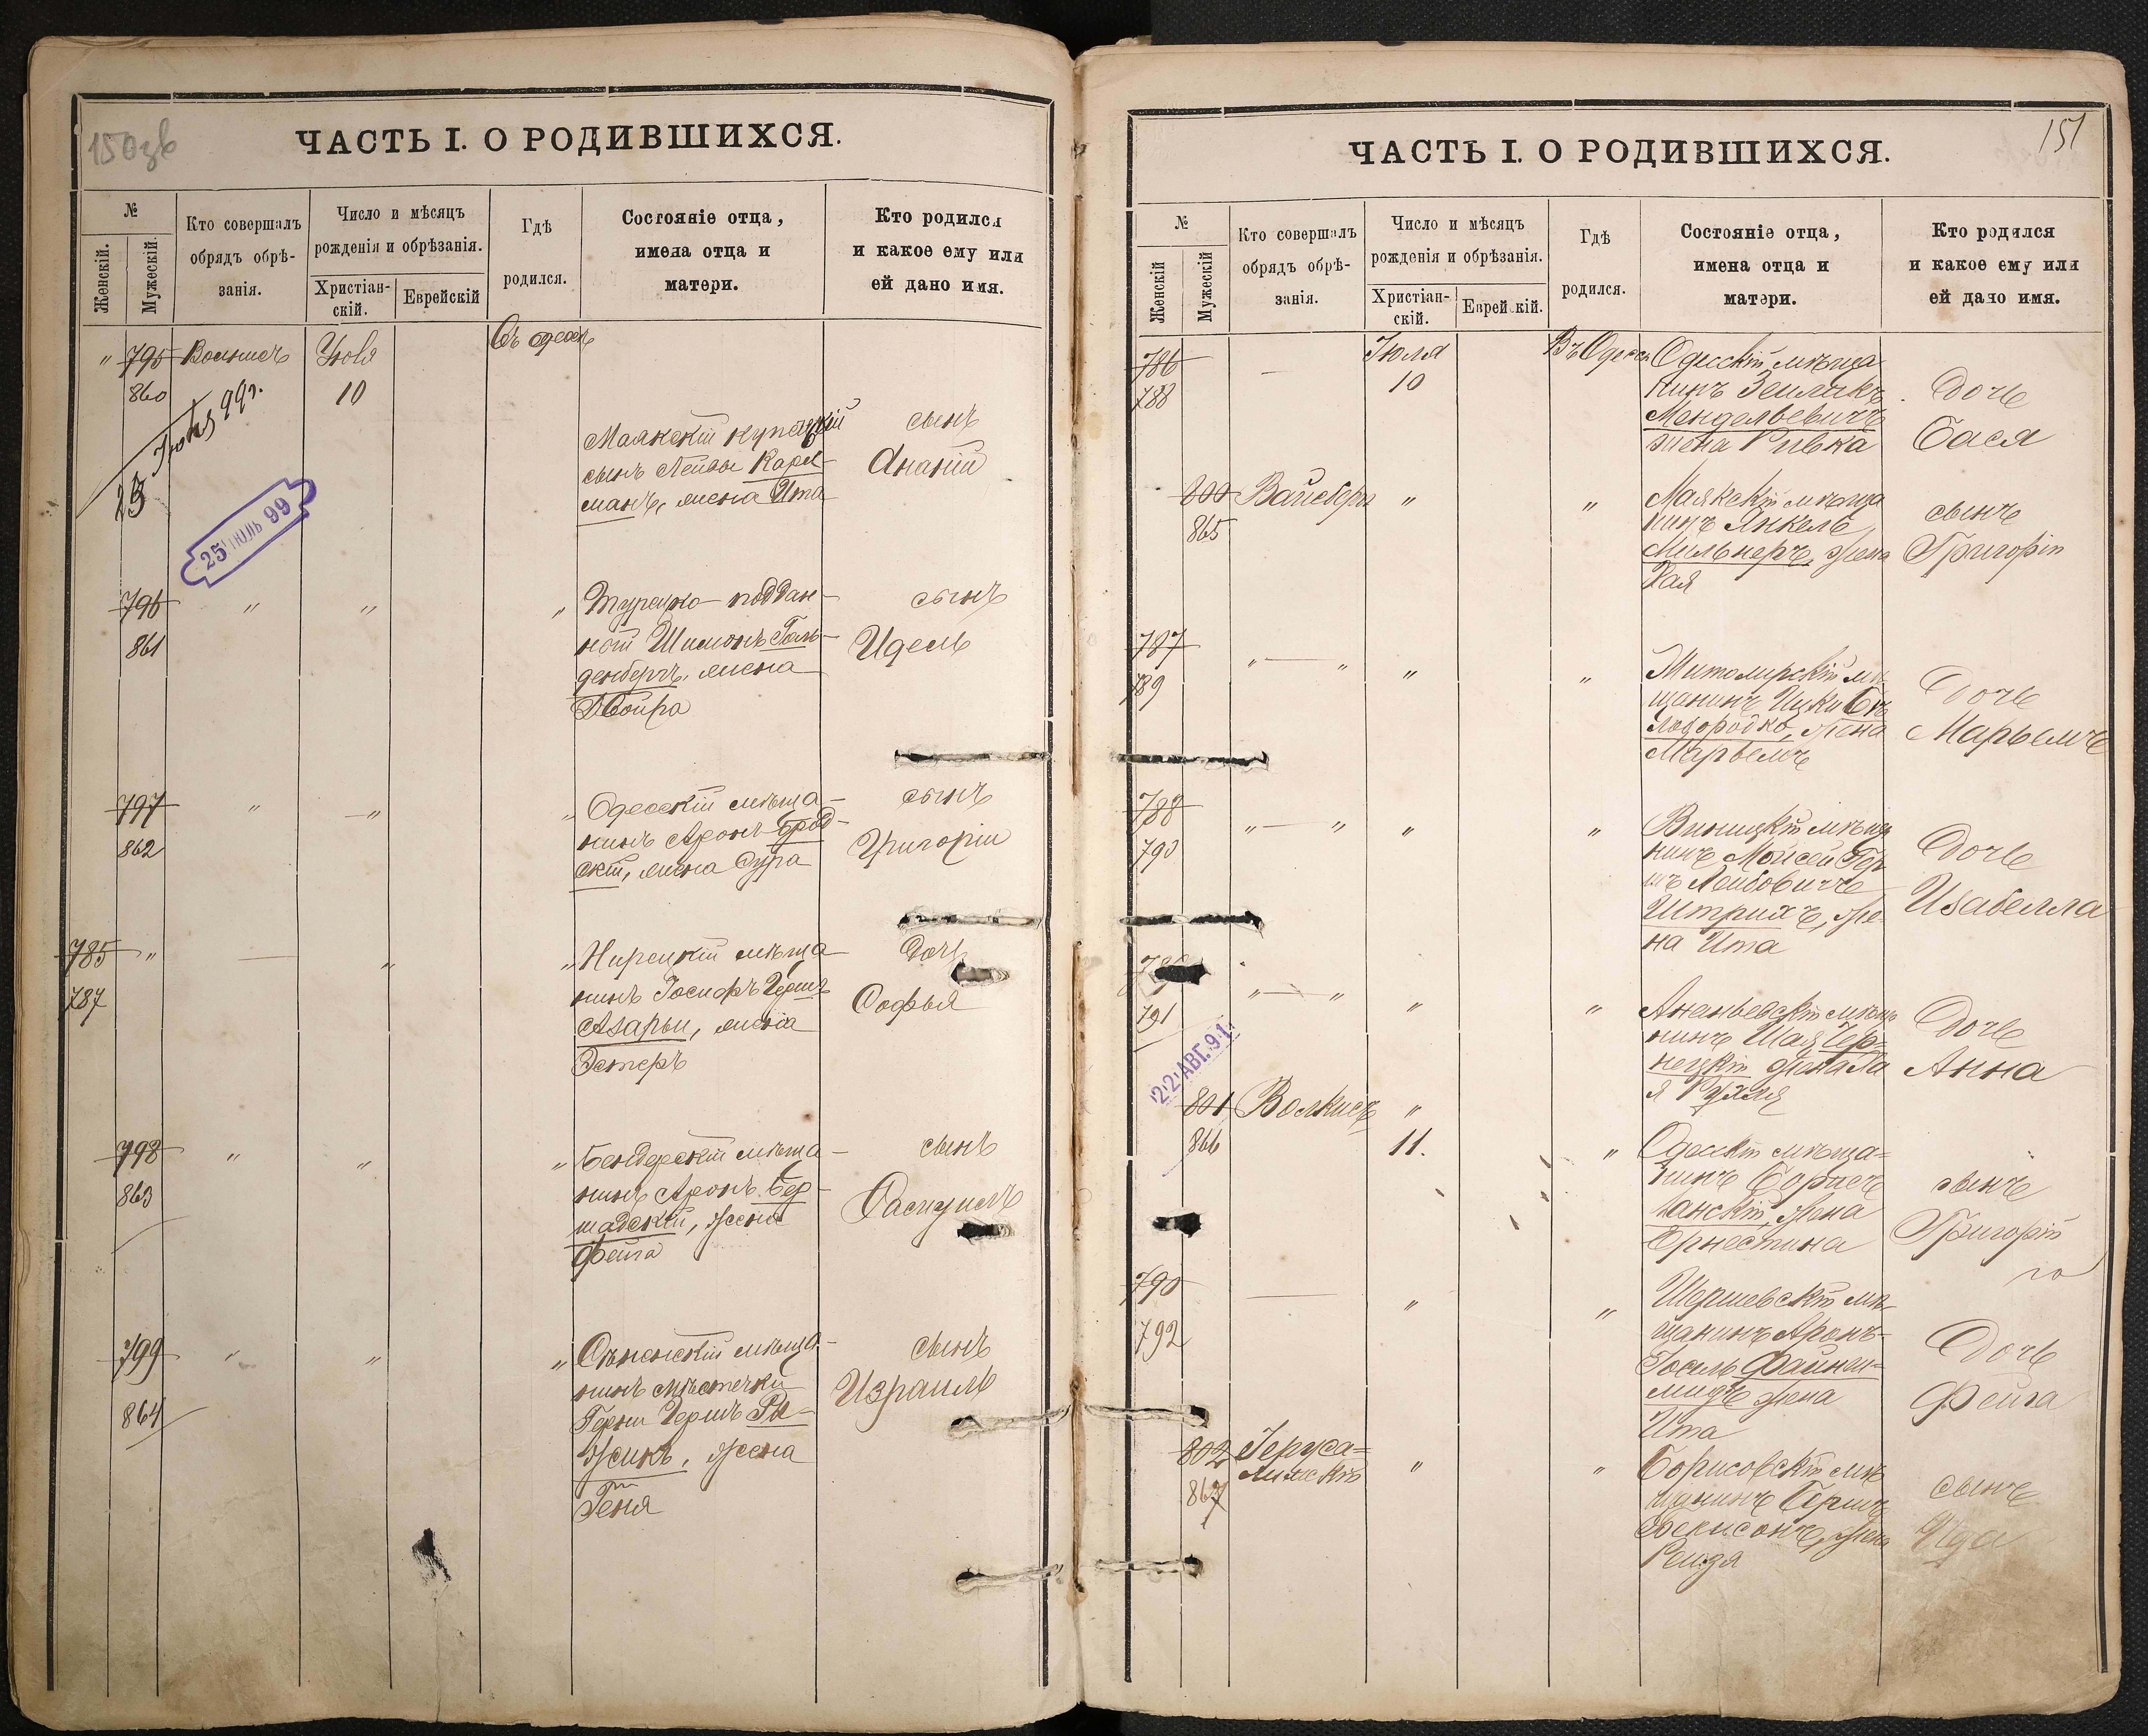 150зв
ЧАСТЬ I. О РОДИВШИХСЯ.
№
Женскій.
Мужескій.
Кто совершалъ
обрядъ обрѣ-
занія.
Число и мѣсяцъ
рожденія и обрѣзанія.
Христіан-
скій.
Еврейскій
Гдѣ
родился.
Состояніе отца,
имена отца и
матери.
Кто родился
и какое ему или
ей дано имя.
" 795
860
Июля
10
25 ІЮЛЬ 99
Маякскій купеческій
сынъ Лейвы Карл-
манъ, жена Ита
сынъ
Ананій
796 " " "
861
Турецко-поддан-
ной Шимонъ Голь-
денбергъ, жена
Двойра
сынъ
Идель
797 " " "
862
Одесскій мѣща-
нинъ Аронъ Брод-
скій, жена Сура
сынъ
Григорій
785 " — " "
787
мѣща-
нинъ Іосифъ Герш
Азарьи, жена
Эстеръ
дочь
Софья
798 " " "
863
Бендерскій мѣща-
нинъ Аронъ Бер-
шадскій, жена
Фейга
сынъ
799 " " "
864
мѣща-
нинъ мѣстечки
Гершъ Ры-
жикъ, жена
Геня
сынъ
Израиль
151
ЧАСТЬ I. О РОДИВШИХСЯ.
№
Женскій
Мужескій
Кто совершалъ
обрядъ обрѣ-
занія.
Число и мѣсяцъ
рожденія и обрѣзанія.
Христіан-
скій.
Еврейскій.
Гдѣ
родился.
Состояніе отца,
имена отца и
матери.
Кто родился
и какое ему или
ей дано имя.
786 — Іюля
788 10
Въ Одессѣ
Одесскій мѣща
нинъ Зейликъ
Мендалевичъ
жена Ривка
дочь
Бася
800 Вайсбергъ " "
865
Маякскій мѣща
нинъ Янкель
Мильнеръ, жена
Хая
сынъ
Григорій
787 " — " " "
789
Житомирскій мѣ
щанинъ Ицко Бѣ
лобородко, жена
Марьемъ
дочь
Марьемъ
788 " — " " "
790
Виницкій мѣща
нинъ Мойсей Гер
шъ Лейбовичъ
Штрихъ, же-
на Ита
дочь
Изабелла
" — " " "
791
22 АВГ. 91
Ананьевскій мѣща
нинъ Шая Чер-
нецкій жена Ха
я Рухля
дочь
Анна
801 Волкисъ "
866 11. "
Одесскій мѣща-
нинъ Борисъ
Ланскій, жена
Ернестина
сынъ
Григорій
790 — " "
792
Шершевскій мѣ-
щанинъ Аронъ-
Іосиль Файнш-
мидъ жена
Ита
дочь
Фейга
802 Іеруса-
лимскій " "
867
Борисовскій мѣ
щанинъ Гершъ
жена
Рейзя
сынъ